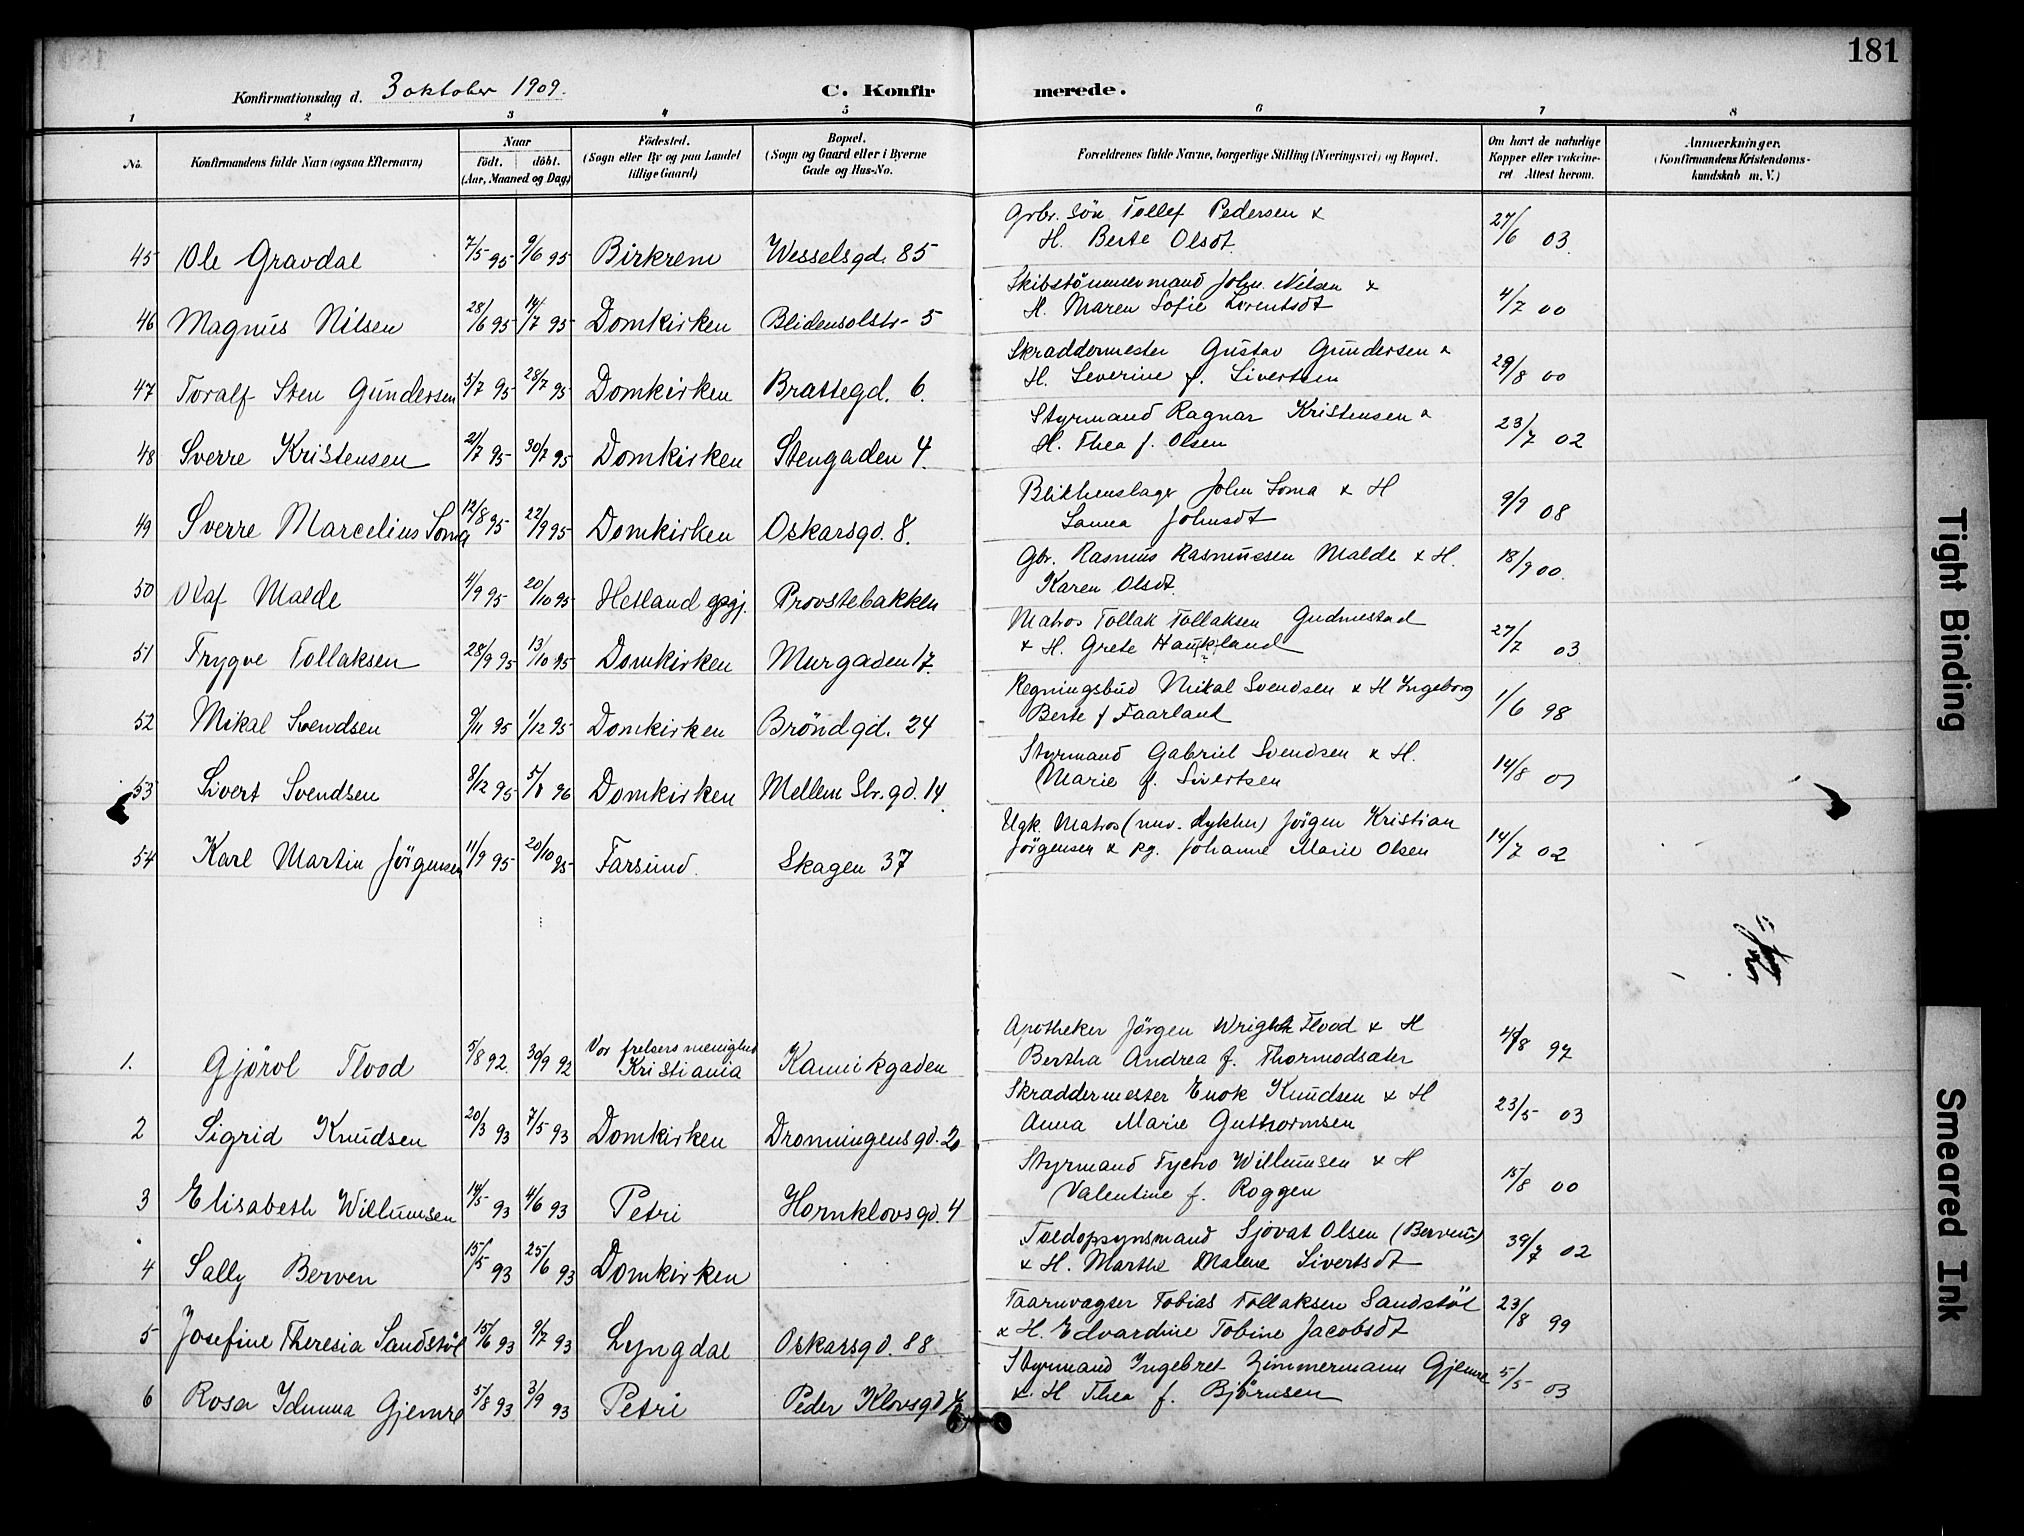 181
Konfirmationsdag d. 3 oktober 1909.
C. Konfirmerede.
1 2 3 4 5 6 7 8
No. Konfirmandens fulde Navn (ogsaa Efternavn) Naar födt. döbt. (Aar, Maaned og Dag) Födested. (Sogn eller By og paa Landet tillige Gaard) Bopæl. (Sogn og Gaard eller i Byerne Gade og Hus-No. Forældrenes fulde Navne, borgerlige Stilling (Næringsvei) og Bopæl. Om havt de naturlige Kopper eller vakcineret Attest herom. Anmærkninger. (Konfirmandens Kristendomskundskab m. V.)
45 Ole Gravdal 7/5 95 9/6 95 Birkrem Wesselsgd. 85 Grbr. sön Tollef Pedersen & H. Berte Olsdt. 27/6 03.
46 Magnus Nilsen 28/6 95 14/7 95 Domkirken Blidensolstr. 5 Skibstömmermand John Nilsen & H. Maren Sofie Lorentsdt 4/7 00
47 Toralf Sten Gundersen 5/7 95 28/7 95 Domkirken Brattegd. 6. Skraddermester Gustav Gundersen & H. Severine f. Sivertsen 29/8 00
48 Sverre Kristensen 21/7 95 30/7 95 Domkirken Stengaden 4. Styrmand Ragnar Kristensen & H. Thea f. Olsen 23/7 02
49 Sverre Marcelius Soma 12/8 95 22/9 95 Domkirken Oskarsgd. 8. Blikkenslager John Soma & H Sanna Johnsdt 9/9 08
50 Olaf Malde 4/9 95 20/10 95 Hetland Provstebakken Gbr. Rasmus Rasmussen Malde & H. Karen Olsdt. 18/9 00.
51 Trygve Tollaksen 28/9 95 13/10 95 Domkirken Murgaden 17. Matros Tollak Tollaksen Gudmestad & H. Grete Haukland 27/7 03
52 Mikal Svendsen 9/11 95 1/12 95 Domkirken Bröndgd. 24 Regningsbud Mikal Svendsen & H Ingeborg Berte f Faarland 1/6 98
53 Sivert Svendsen 8/12 95 96 Domkirken Mellem Str. gd. 14. Styrmand Gabriel Svendsen & H. Marie f. Sivertsen 14/8
54 Karl Martin Jörgensen 11/9 95 20/10 95 Farsund. Skagen 37 Ugk. Matros (nuv. dykker) Jörgen Kristian Jörgensen & pg. Johanne Marie Olsen 14/7 02
1. Gjörvl Flood 5/8 92. 30/9 92 Vor frelsers menighed Kristiania Kannikgaden Apotheker Jörgen Wright Flood & H Bertha Andrea f. Thormodsäter 97
2 Sigrid Knudsen 20/3 93 7/5 93 Domkirken Dronningensgd. 20 Skraddermester Enok Knudsen & H Anna Marie Guttormsen 23/5 03
3 Elisabeth Willumsen 14/5 93 4/6 93 Petri Hornklovsgd. 4 Styrmand Tycho Willumsen & H Valentine f. Roggen 15/8 00
4 Sally Berven 15/5 93 25/6 93 Domkirken Toldopsynsmand Sjovat Olsen (Berven) & H. Marthe Malene Sivertsdt 02
5 Josefine Theresia Sandstöl 15/6 93 9/7 93 Lyngdal Oskarsgd. 88 Taarnvagter Tobias Tollaksen Sandstöl & H. Edvardine Tobine Jacobsdt 23/8 99
6 Rosa Idunna Gjemre 5/8 93 3/9 93 Petri Peder Klovsgd Styrmand Ingebret Zimmermann Gjemre & H Thea f. Björnsen 5/5 03
Tight Binding
Smeared Ink